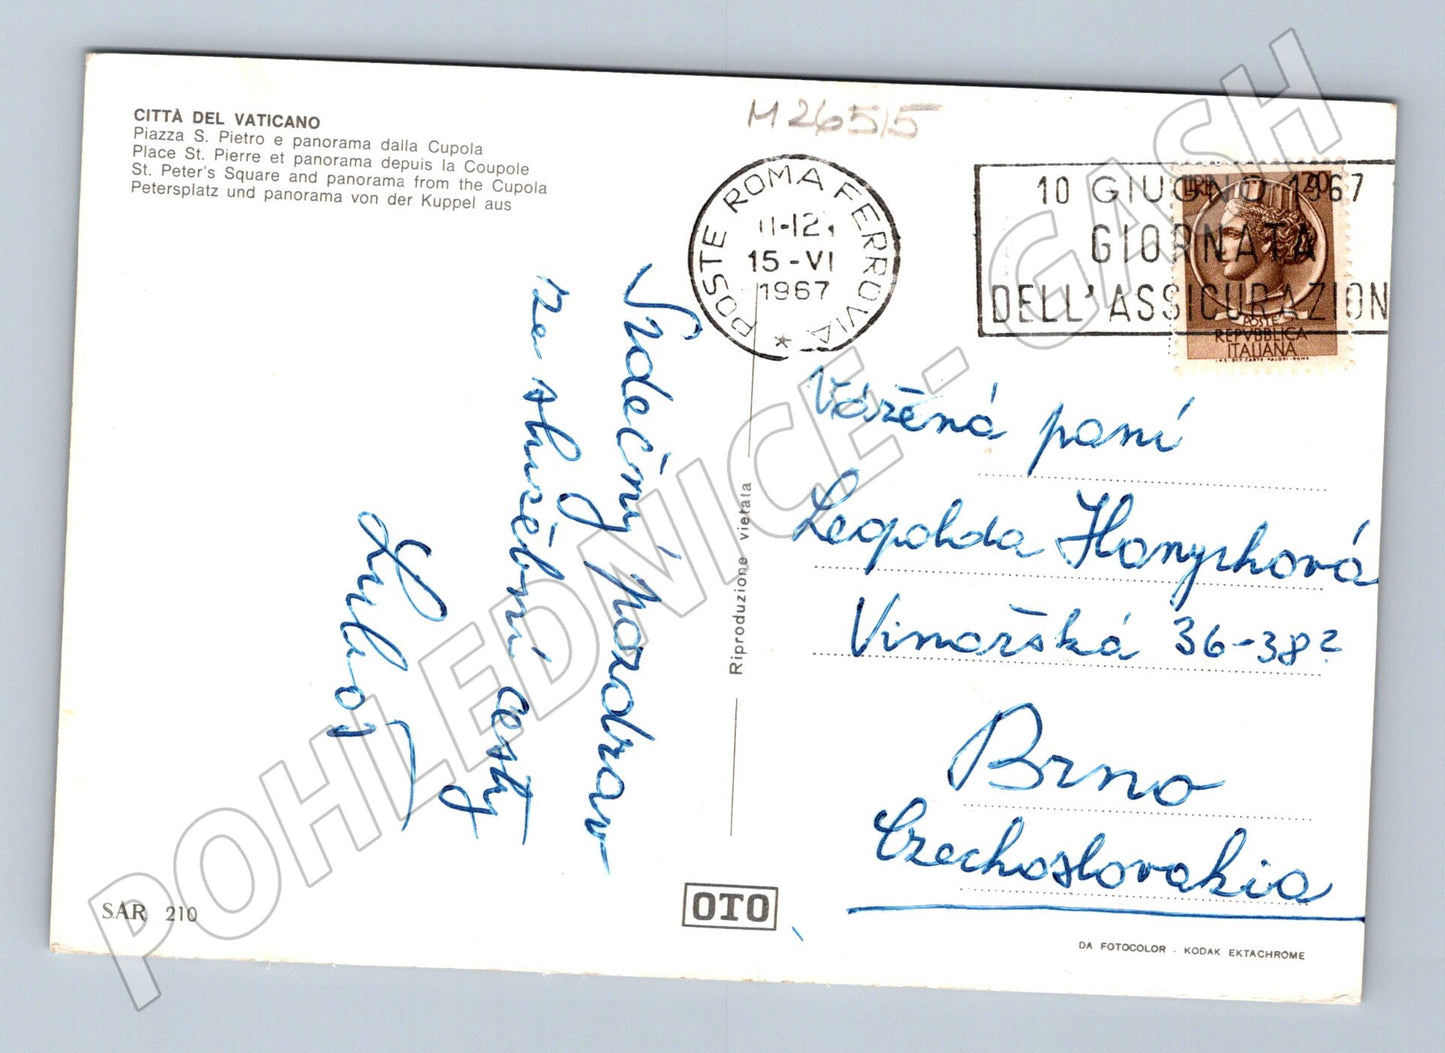 CITTÀ DEL VATICANO
Piazza S. Pietro e panorama dalla Cupola
Place St. Pierre et panorama depuis la Coupole
St. Peter's Square and panorama from the Cupola
Petersplatz und panorama von der Kuppel aus
M 265/5
POSTE ROMA FERROVIA
11-12
15-VI
1967
*
10 GIUGNO 1967
GIORNATA
DELL'ASSICURAZION
LIRE 20
POSTE
REPVBBLICA
ITALIANA
Srdečný pozdrav
ze služební cesty
Vážená paní
Leopolda Hanyzhová
Vinařská 36-38?
Brno
Czechoslovakia
Riproduzione vietata
SAR 210
OTO
DA FOTOCOLOR - KODAK EKTACHROME
POHLEDNICE - GASH